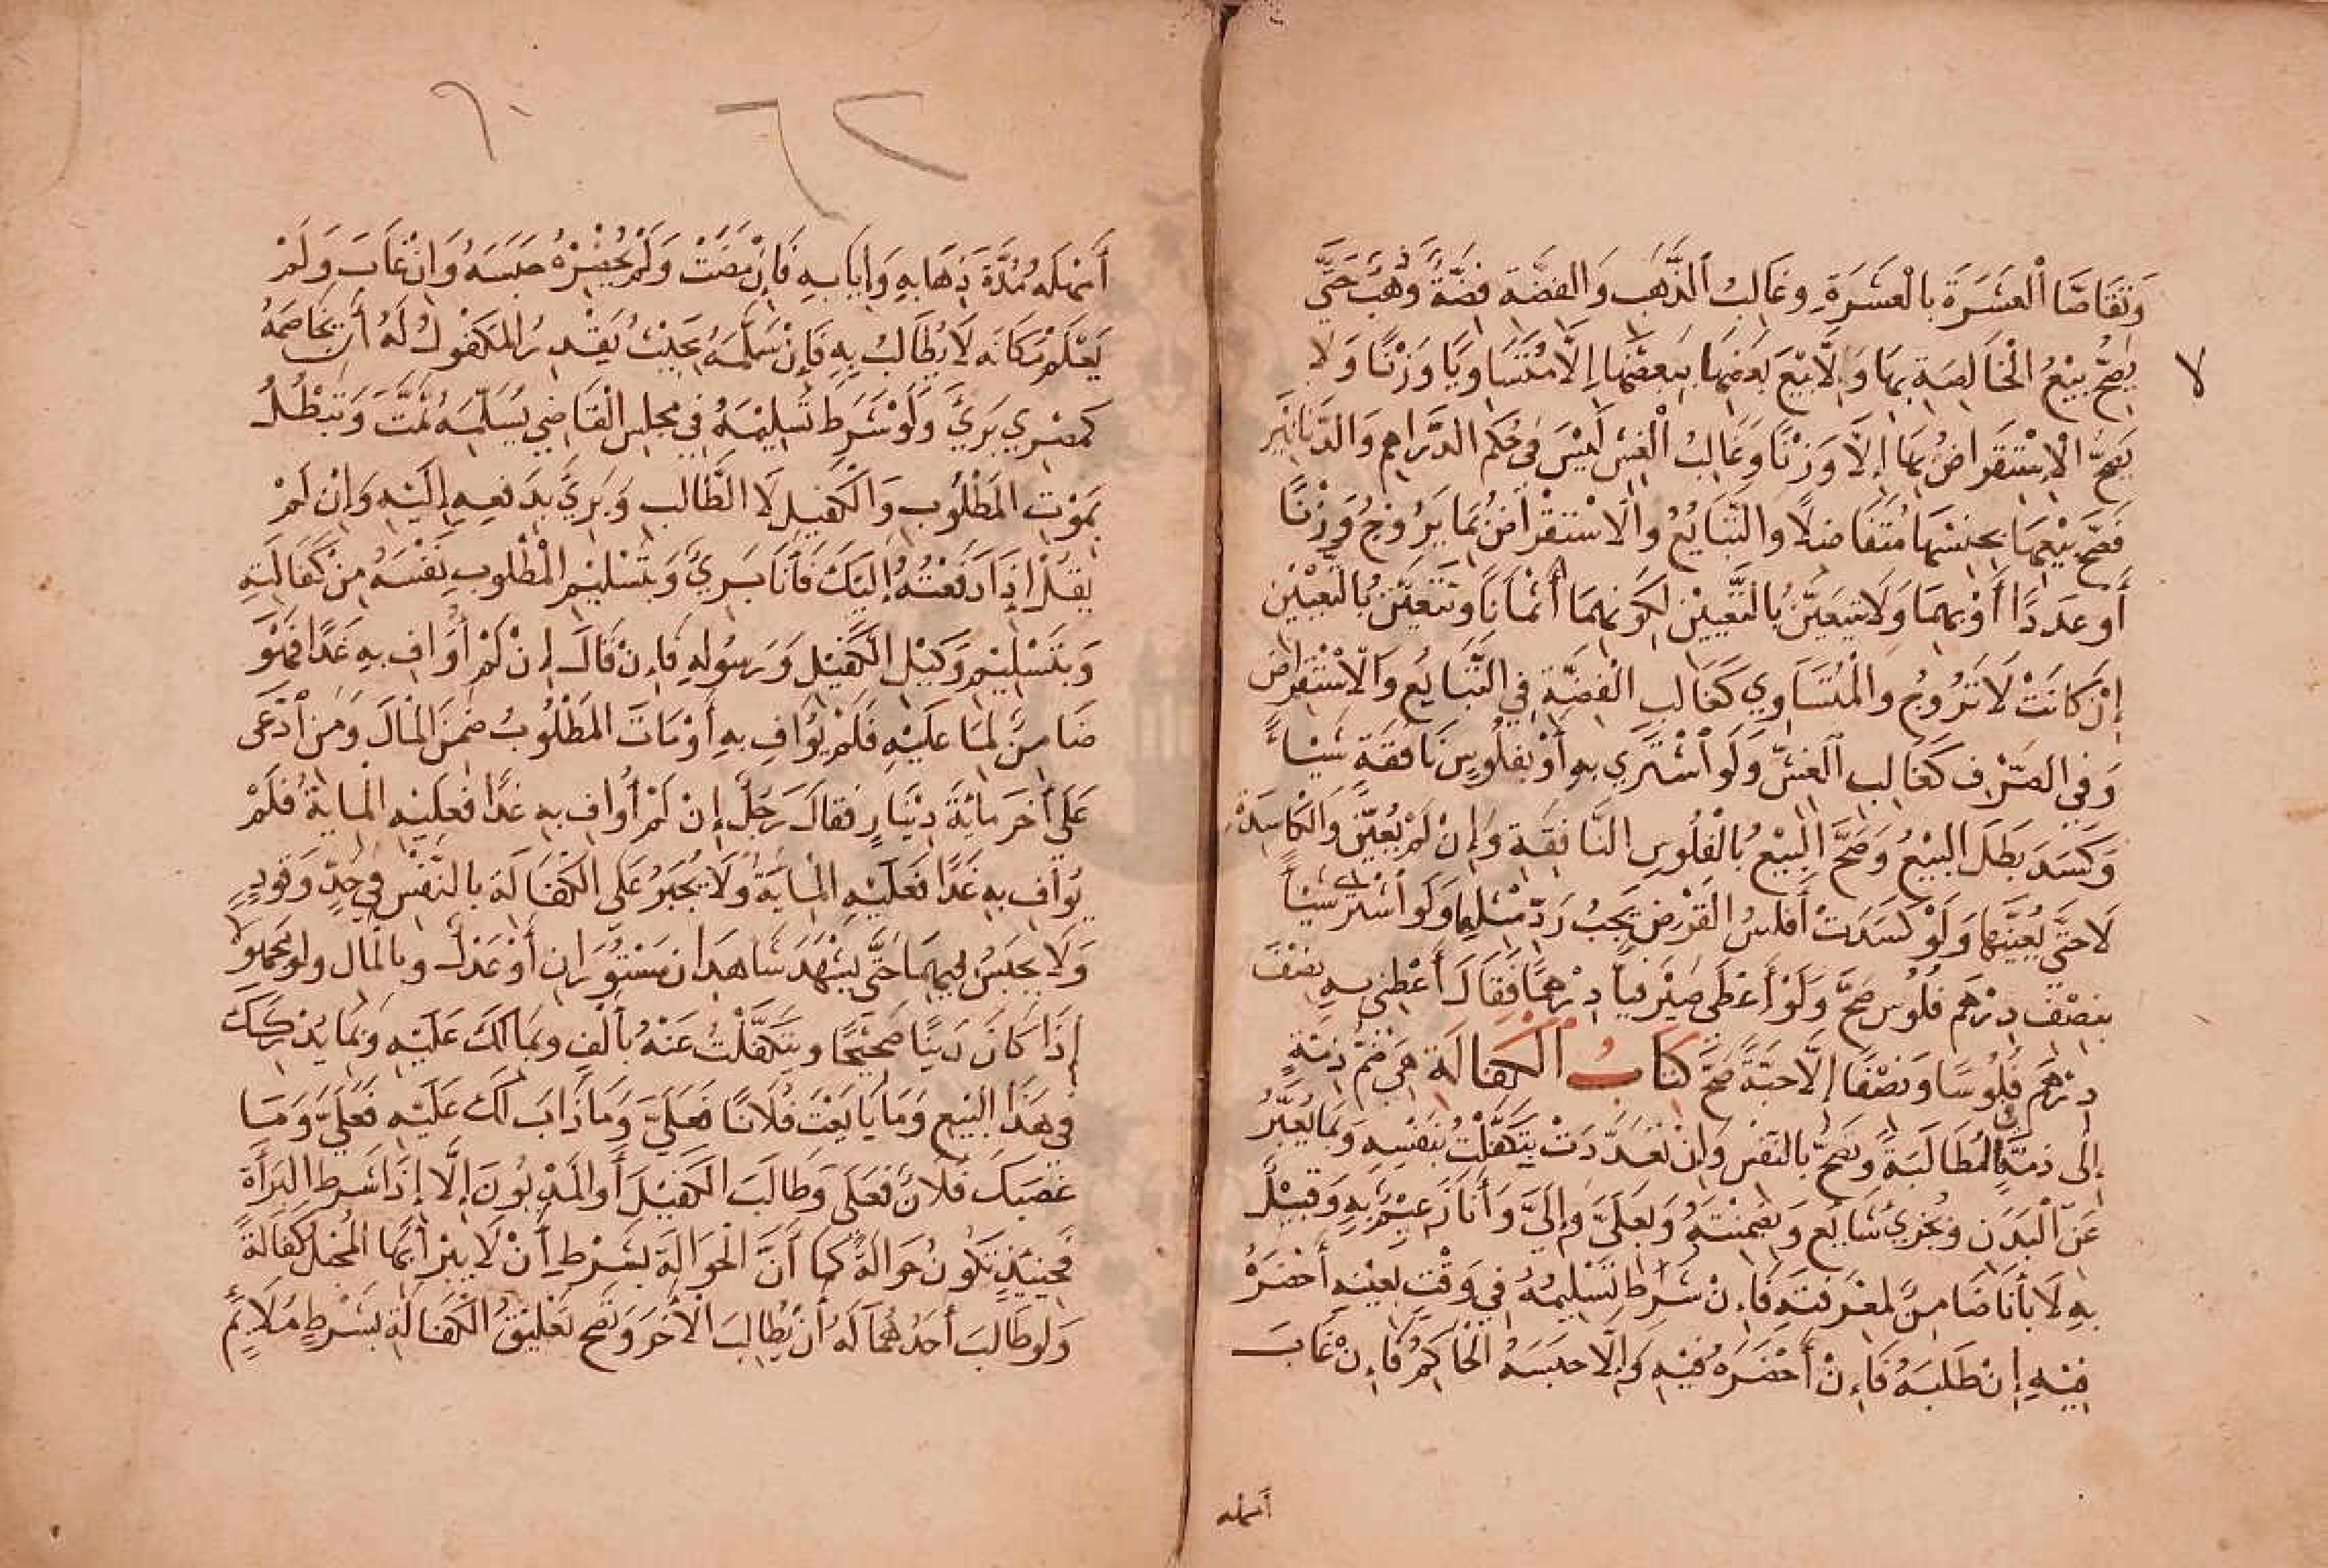 وَتَقَاصَّا الْعَشَرَةَ بِالْعَشَرَةِ وَغَالِبُ الذَّهَبِ وَالفِضَّةِ فِضَّةٌ وَذَهَبٌ حَتَّى
لا
يَصِحُّ بَيْعُ الْخَالِصَةِ بِهَا وَلَا بَيْعَ بَعْضِهَا بِبَعْضِهَا إِلَّا مُتَسَاوِيًا وَزْنًا وَلَا
يَصِحُّ الْاِسْتِقْرَاضُ بِهَا إِلَّا وَزْنًا وَغَالِبُ الْغِشِّ لَيْسَ فِي حُكْمِ الدَّرَاهِمِ وَالدَّنَانِيْرِ
فَصَحَّ بَيْعُهَا بِجِنْسِهَا مُتَفَاضِلًا وَالتَّبَايُعُ وَالْاِسْتِقْرَاضُ بِمَا يَرُوْجُ وَزْنًا
أَوْ عَدَدًا أَوْ بِهِمَا وَلَا يَتَعَيَّنُ بِالتَّعْيِيْنِ لِكَوْنِهِمَا أَثْمَانًا وَتَتَعَيَّنُ بِالتَّعْيِيْنِ
إِنْ كَانَتْ لَا تَرُوْجُ وَالْمُتَسَاوِي كَغَالِبِ الْفِضَّةِ فِي التَّبَايُعِ وَالْاِسْتِقْرَاضِ
وَفِي الصَّرْفِ كَغَالِبِ الْغِشِّ وَلَوْ اشْتَرَي بِهِ أَوْ بِفُلُوسٍ نَافِقَةٍ شَيْئًا
وَكَسَدَ بَطَلَ البَيْعُ وَصَحَّ الْبَيْعُ بِالْفُلُوسِ النَّافِقَةِ وَإِنْ لَمْ يُعَيَّنْ وَالْكَاسِدَةِ
لَا حَتَّى يُعَيِّنَهَا وَلَوْ كَسَدَتْ أَفْلُسُ الْقَرْضِ يَجِبُ رَدُّ مِثْلِهَا وَلَوْ اشْتَرَى شَيْئًا
بِنِصْفِ دِرْهَمٍ فُلُوسٍ صَحَّ وَلَوْ أَعْطَى صَيْرَفِيًّا دِرْهَمًا فَقَالَ أَعْطِنِي بِهِ نِصْفَ
دِرْهَمٍ فُلُوسًا وَنِصْفًا إِلَّا حَبَّةً صَحَّ كِتَابُ الْكَفَالَةِ هِيَ ضَمُّ ذِمَّةٍ
إِلَى ذِمَّةٍ فِي الْمُطَالَبَةِ وَتَصِحُّ بِالنَّفْسِ وَإِنْ تَعَدَّدَتْ بِتَكَفَّلْتُ بِنَفْسِهِ وَبِمَا يُعَبَّرُ
عَنِ الْبَدَنِ وَبِجُزْءٍ شَايِعٍ وَبِضَمِنْتُهُ وَبِعَلَيَّ وَإِلَيَّ وَأَنَا زَعِيْمٌ بِهِ وَقَبِيْلٌ
بِهِ لَا بِأَنَا ضَامِنٌ لِمَعْرِفَتِهِ فَإِنْ شَرَطَ تَسْلِيْمَهُ فِي وَقْتٍ بِعَيْنِهِ أَحْضَرَهُ
فِيْهِ إِنْ طَلَبَهُ فَإِنْ أَحْضَرَهُ فِيْهِ وَإِلَّا حَبَسَهُ الْحَاكِمُ فَإِنْ غَابَ
أمهله
٦٢ ٦٠
أَمْهَلَهُ مُدَّةَ ذِهَابِهِ وَإِيَابِهِ فَإِنْ مَضَتْ وَلَمْ يُحْضِرْهُ حَبَسَهُ وَإِنْ غَابَ وَلَمْ
يَعْلَمْ مَكَانَه لَا يُطَالَبُ بِهِ فَإِنْ سَلَّمَهُ بِحَيْثُ يَقْدِرُ الْمَكْفُولُ لَهُ أَنْ يُخَاصِمَهُ
كَمِصْرٍ بَرِيَّ وَلَوْ شَرَطَ تَسْلِيْمَهُ فِي مَجْلِسِ الْقَاضِي يُسَلِّمُهُ ثَمَّتَ وَتَبْطُلُ
بِمَوْتِ الْمَطْلُوبِ وَالْكَفِيلِ لَا الطَّالِبِ وَبَرِيَّ بِدَفْعِهِ إِلَيْهِ وَإِنْ لَمْ
يَقُلْ إِذَا دَفَعْتُهُ إِلَيْكَ فَأَنَا بَرِيٌّ وَبِتَسْلِيْمِ الْمَطْلُوبِ نَفْسَهُ مِنْ كَفَالَتِهِ
وَبِتَسْلِيْمِ وَكِيْلِ الْكَفِيْلِ وَرَسُولِهِ فَإِنْ قَالَ إِنْ لَمْ أُوَافِ بِهِ غَدًا فَهُوَ
ضَامِنٌ لِمَا عَلَيْهِ فَلَمْ يُوَافِ بِهِ أَوْ مَاتَ الْمَطْلُوبُ ضَمِنَ الْمَالَ وَمَنِ ادَّعَى
عَلَى أَخَرَ مِائَةَ دِيْنَارٍ فَقَالَ رَجُلٌ إِنْ لَمْ أُوَافِ بِهِ غَدًا فَعَلَيْهِ الْمِايَةُ فَلَمْ
يُوَافِ بِهِ غَدًا فَعَلَيْهِ الْمِايَةُ وَلَا يُجْبَرُ عَلَى الْكَفَالَةِ بِالنَّفْسِ فِي حَدٍّ وَقَوَدٍ
وَلَا يُحْبَسُ فِيهِمَا حَتَّى يَشْهَدَ شَاهِدَانِ مَسْتُوْرَانِ أَوْ عَدْلٌ وَبِالْمَالِ وَلَوْ مَجْهُولًا
إِذَا كَانَ دَيْنًا صَحِيْحًا وَبِتَكَفَّلْتُ عَنْهُ بِأَلْفٍ وَبِمَا لَكَ عَلَيْهِ وَبِمَا يُدْرِكُكَ
فِي هَذَا الْبَيْعِ وَمَا بَايَعْتَ فُلَانًا فَعَلَيَّ وَمَا ذَابَ لَكَ عَلَيْهِ فَعَلَيَّ وَمَا
غَصَبَكَ فُلَانٌ فَعَلَى وَطَالَبَ الْكَفِيْلَ أَوِ الْمَدْيُونَ إِلَّا إِذَا شَرَطَ الْبَرَأَةَ
فَحِيْنَئِذٍ تَكُونُ حَوَالَةً كَمَا أَنَّ الْحَوَالَةَ بِشَرْطِ أَنْ لَا يَبْرَأَ بِهَا الْمُحِيْلُ كَفَالَةٌ
وَلَوْ طَالَبَ أَحَدَهُمَا لَهُ أَنْ يُطَالِبَ الْأَخَرَ وَتَصِحُ تَعْلِيْقُ الْكَفَالَةِ بِشَرْطٍ مُلَايِمٍ